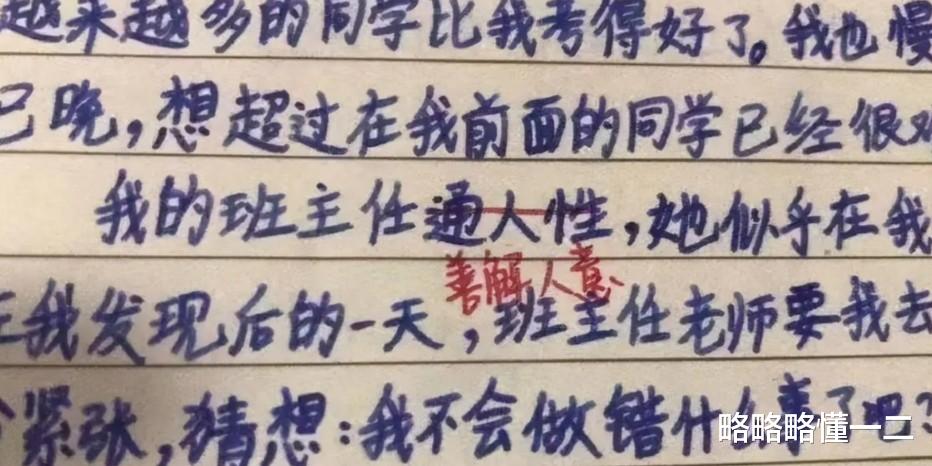 越来越多的同学比我考得好了。我也慢
已晚,想超过在我前面的同学已经很难
我的班主任通人性,她似乎在我
善解人意
在我发现后的一天,班主任老师要我去
紧张,猜想:我不会做错什么事了吧?
略略略懂一二